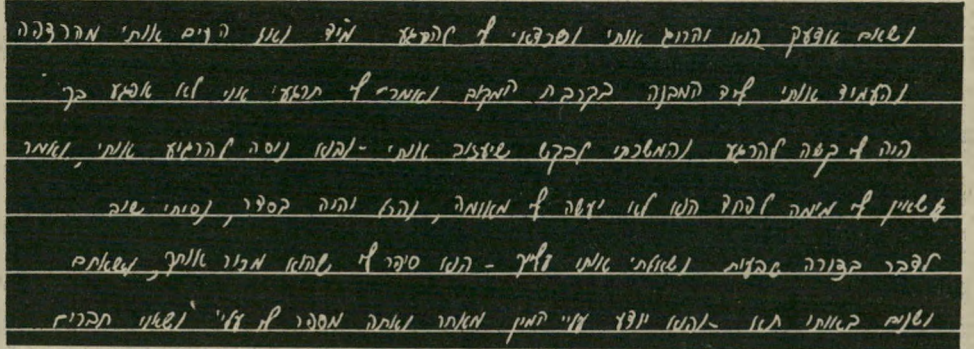 ושאם אצעק הוא יהרוג אותי ושכדאי לי להרגע מיד ואז הרים אותי מהרצפה
והעמיד אותי ליד המבנה בקרבת המקום ואמר לי תרגעי אני לא אפגע בך
היה לי קשה להרגע והמשכתי לבקש שיעזוב אותי - והוא ניסה להרגיע אותי ואמר
שאין לי ממה לפחד הוא לא יעשה לי מאומה, והכל יהיה בסדר, נסיתי שוב
לדבר בצורה טבעית ושאלתי אותו עליך - הוא סיפר לי שהוא מכיר אותך, ושאתם
ושנים באותו תא - והוא יודע עליי המון מאחר ואתה מספר לו עליי ושאני חברים